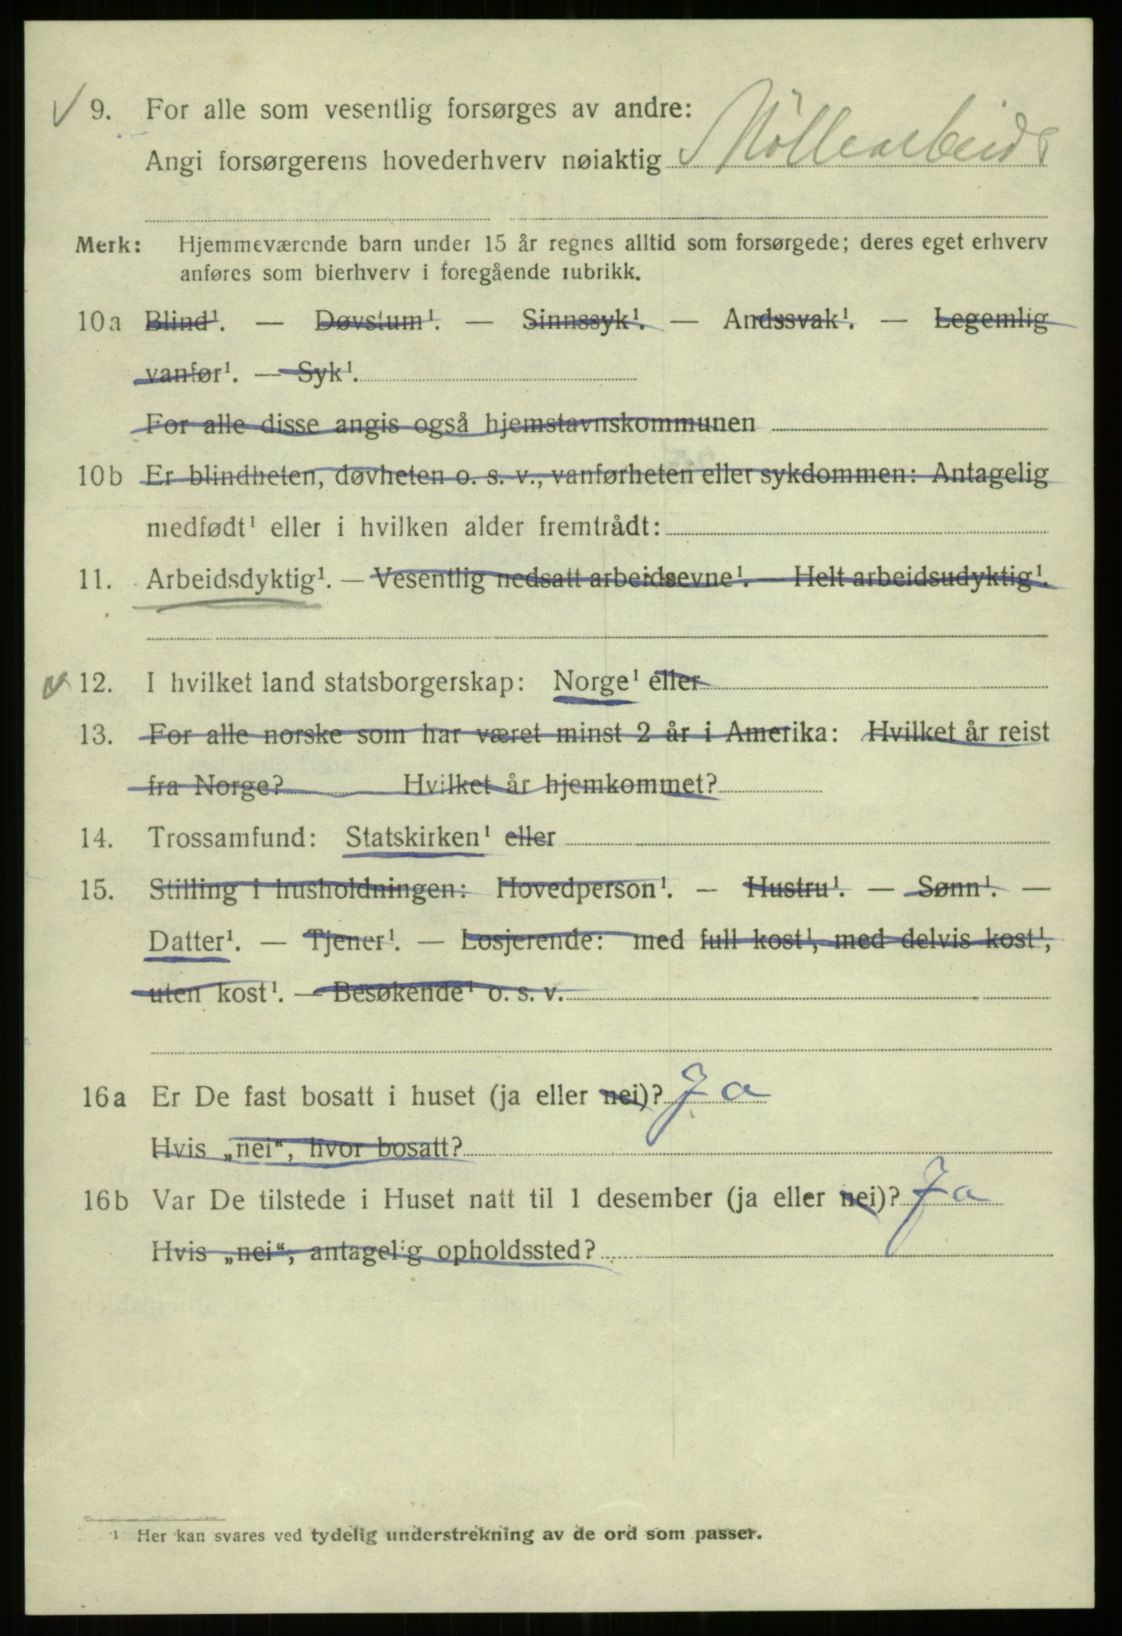 9. For alle som vesentlig forsørges av andre:
Angi forsørgerens hovederhverv nøiaktig Möllearbeid
Merk: Hjemmeværende barn under 15 år regnes alltid som forsørgede; deres eget erhverv
anføres som bierhverv i foregående rubrikk.
10a Blind¹. — Døvstum¹. — Sinnssyk¹. — Andssvak¹. — Legemlig
vanfør¹. — Syk¹.
For alle disse angis også hjemstavnskommunen
10b Er blindheten, døvheten o. s. v., vanførheten eller sykdommen: Antagelig
medfødt¹ eller i hvilken alder fremtrådt:
11. Arbeidsdyktig¹. — Vesentlig nedsatt arbeidsevne¹. — Helt arbeidsudyktig¹.
12. I hvilket land statsborgerskap: Norge¹ eller
13. For alle norske som har været minst 2 år i Amerika: Hvilket år reist
fra Norge? Hvilket år hjemkommet?
14. Trossamfund: Statskirken¹ eller
15. Stilling i husholdningen: Hovedperson¹. — Hustru¹. — Sønn¹. —
Datter¹. — Tjener¹. — Losjerende: med full kost¹, med delvis kost¹,
uten kost¹. — Besøkende¹ o. s. v.
16a Er De fast bosatt i huset (ja eller nei)? Ja
Hvis „nei“, hvor bosatt?
16b Var De tilstede i Huset natt til 1 desember (ja eller nei)? Ja
Hvis „nei“, antagelig opholdssted?
¹ Her kan svares ved tydelig understrekning av de ord som passer.